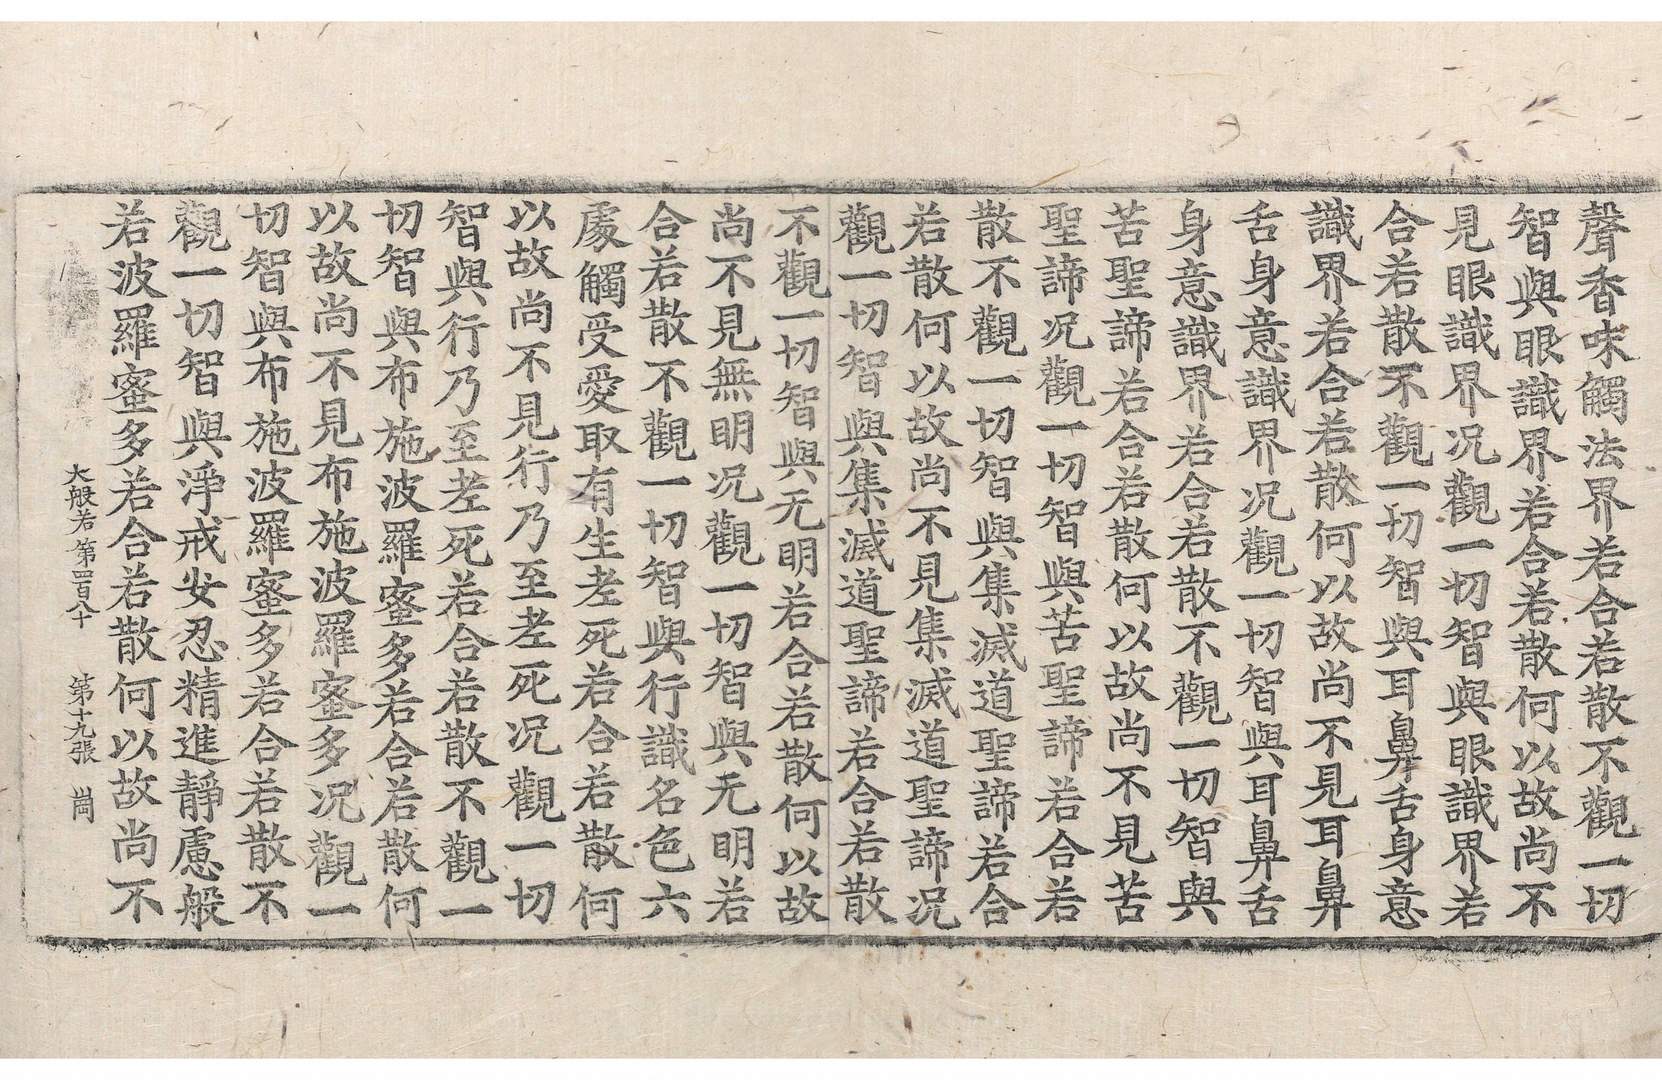 聲香味觸法界若合若散不觀一切
智與眼識界若合若散何以故尚不
見眼識界况觀一切智與眼識界若
合若散不觀一切智與耳鼻舌身意
識界若合若散何以故尚不見耳鼻
舌身意識界况觀一切智與耳鼻舌
身意識界若合若散不觀一切智與
苦聖諦若合若散何以故尚不見苦
聖諦况觀一切智與苦聖諦若合若
散不觀一切智與集滅道聖諦若合
若散何以故尚不見集滅道聖諦况
觀一切智與集滅道聖諦若合若散
不觀一切智與无明若合若散何以故
尚不見無明况觀一切智與无明若
合若散不觀一切智與行識名色六
處觸受愛取有生老死若合若散何
以故尚不見行乃至老死况觀一切
智與行乃至老死若合若散不觀一
切智與布施波羅蜜多若合若散何
以故尚不見布施波羅蜜多况觀一
切智與布施波羅蜜多若合若散不
觀一切智與淨戒安忍精進靜慮般
若波羅蜜多若合若散何以故尚不
大般若第四百八十 第十九張 崗